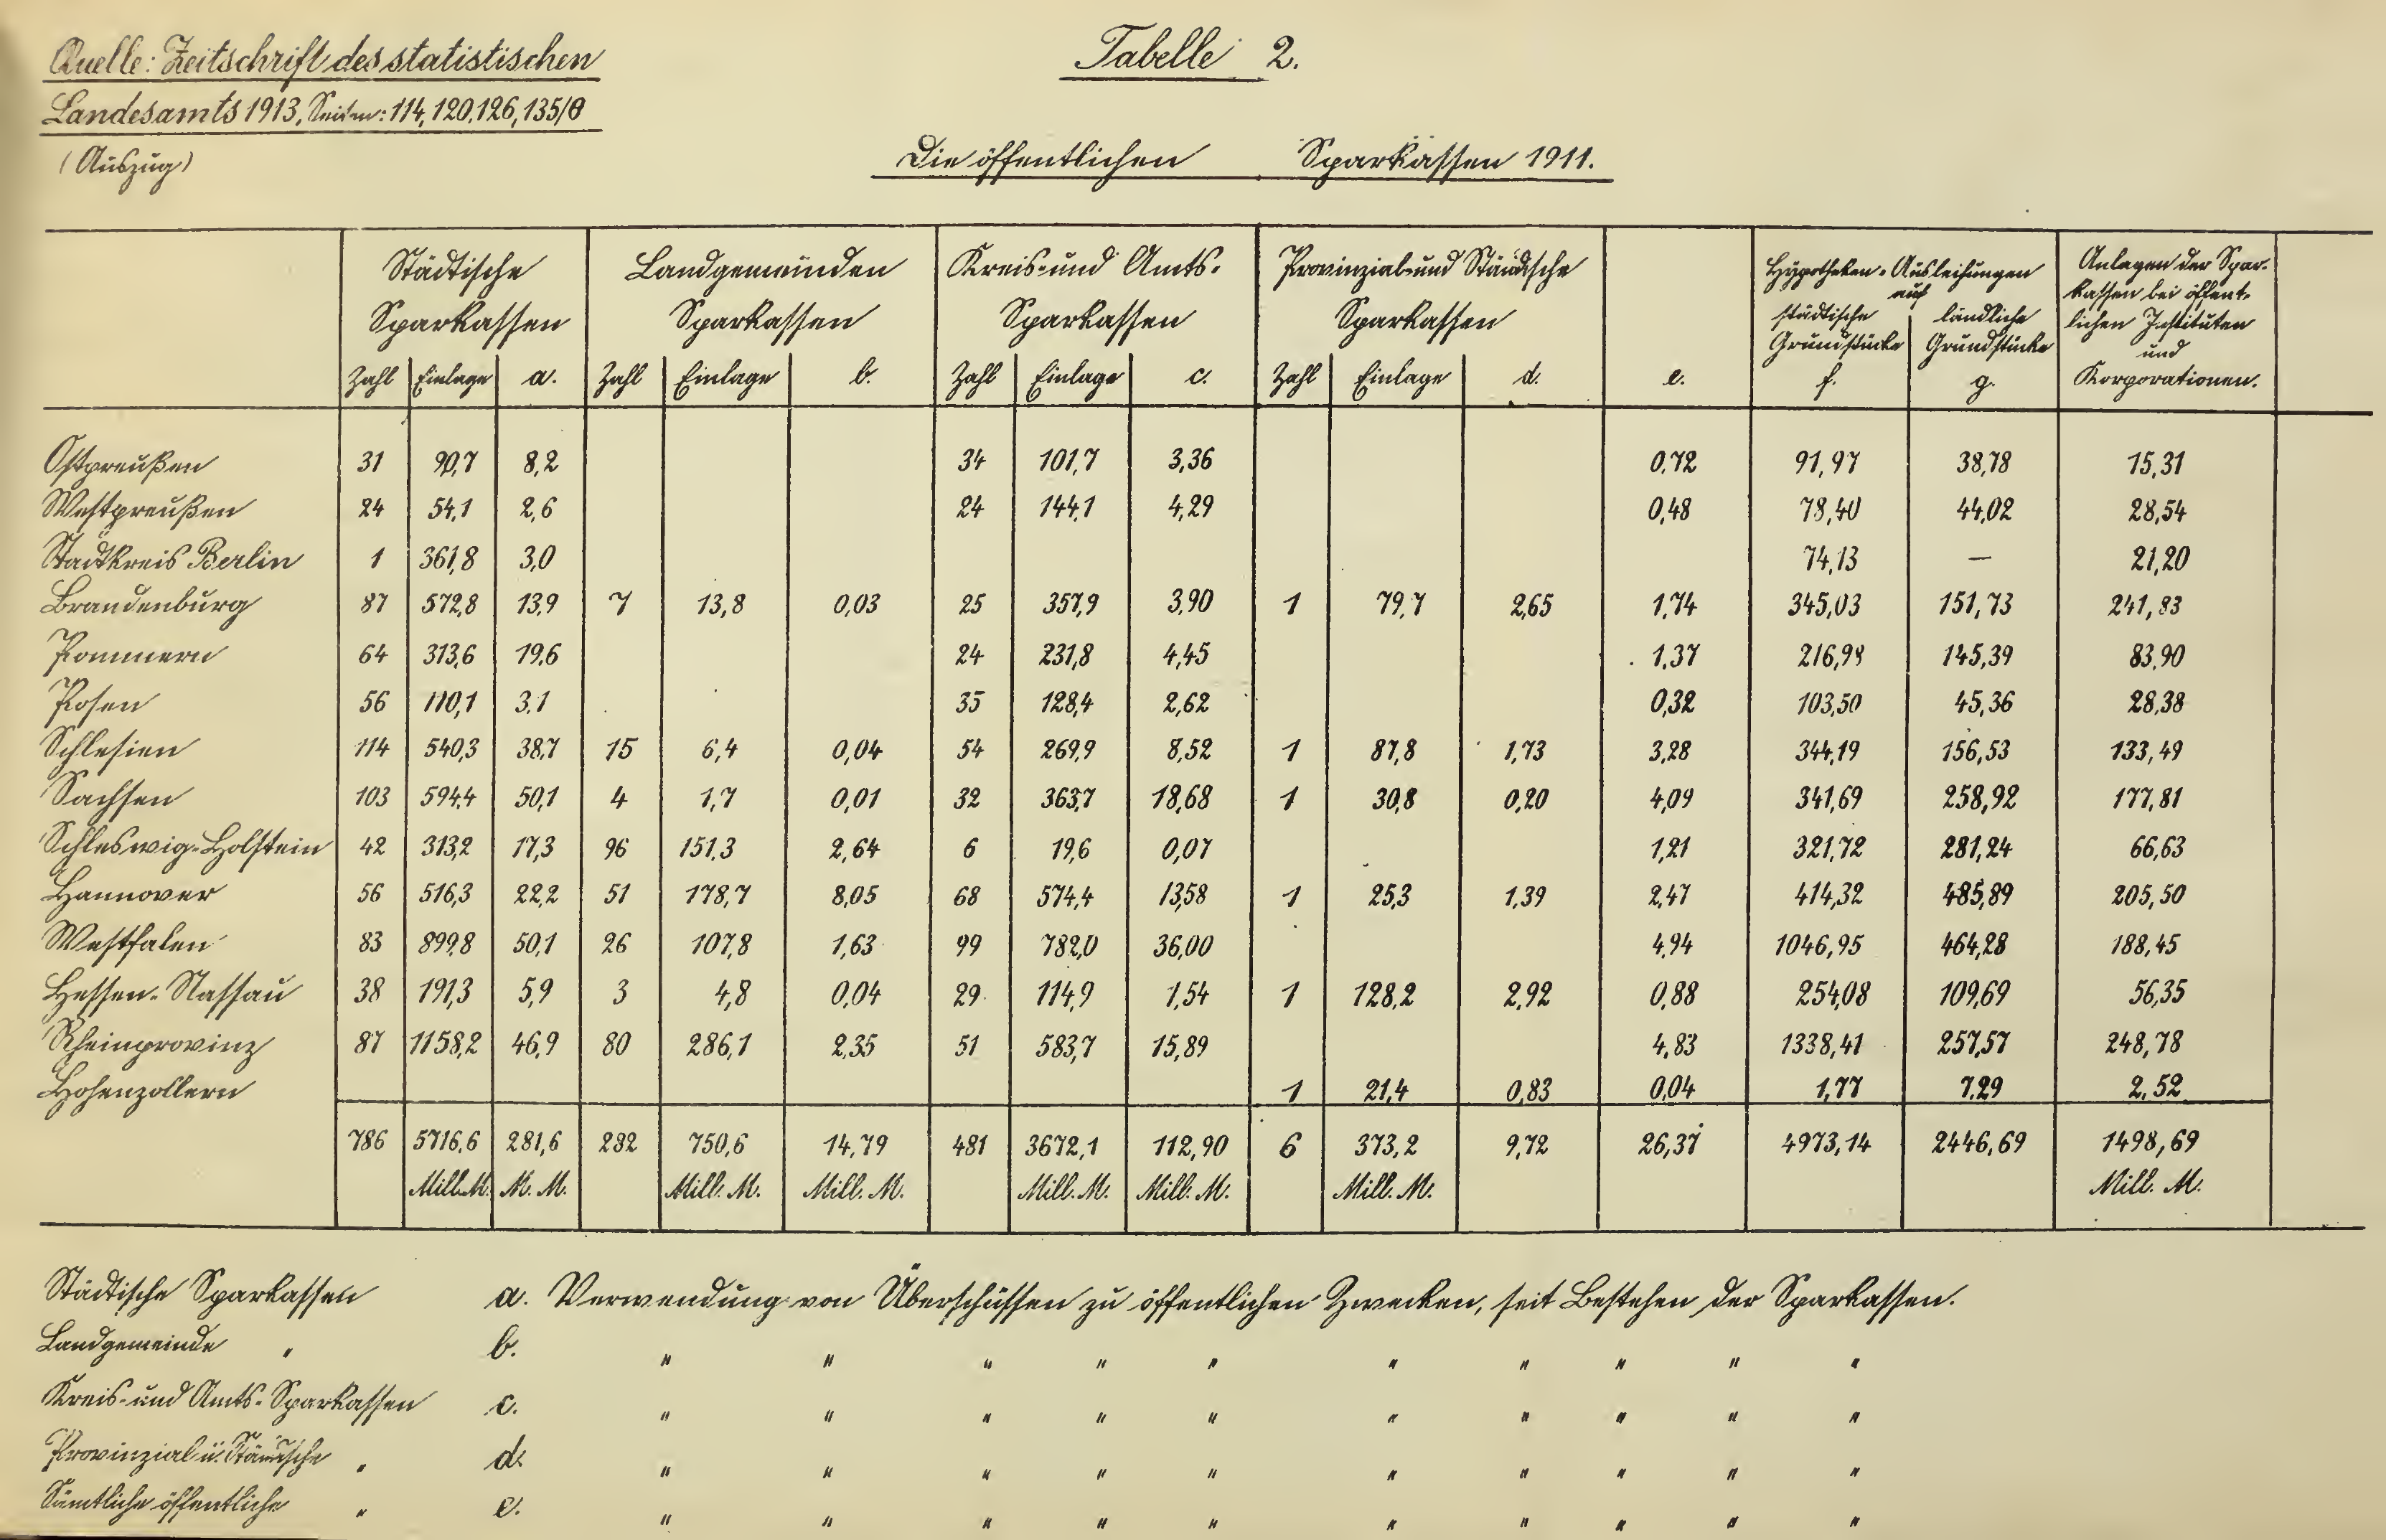 Quelle: Zeitschrift des statistischen
Landesamts 1913, Seiten: 114, 120, 126, 135/8
(Auszug)
Tabelle 2.
Die öffentlichen Sparkassen 1911.
Städtische Sparkassen Landgemeinden Sparkassen Kreis- und Amts- Sparkassen Provinzial- und Ständische Sparkassen Hypotheken-Ausleihungen auf städtische Grundstücke ländliche Grundstücke Anlagen der Sparkassen bei öffentlichen Instituten und Korporationen.
Zahl Einlage a. Zahl Einlage b. Zahl Einlage c. Zahl Einlage d. e. f. g.
Ostpreußen 31 90,7 8,2 34 101,7 3,36 0,72 91,97 38,78 15,31
Westpreußen 24 54,1 2,6 24 144,1 4,29 0,48 78,40 44,02 28,54
Stadtkreis Berlin 1 361,8 3,0 74,13 — 21,20
Brandenburg 87 572,8 13,9 7 13,8 0,03 25 357,9 3,90 1 79,7 2,65 1,74 345,03 151,73 241,83
Pommern 64 313,6 19,6 24 231,8 4,45 1,37 216,98 145,39 83,90
Posen 56 110,1 3,1 35 128,4 2,62 0,32 103,50 45,36 28,38
Schlesien 114 540,3 38,7 15 6,4 0,04 54 269,9 8,52 1 87,8 1,73 3,28 344,19 156,53 133,49
Sachsen 103 594,4 50,1 4 1,7 0,01 32 363,7 18,68 1 30,8 0,20 4,09 341,69 258,92 177,81
Schleswig-Holstein 42 313,2 17,3 96 151,3 2,64 6 19,6 0,07 1,21 321,72 281,24 66,63
Hannover 56 516,3 22,2 51 178,7 8,05 68 574,4 13,58 1 25,3 1,39 2,47 414,32 485,89 205,50
Westfalen 83 899,8 50,1 26 107,8 1,63 99 782,0 36,00 4,94 1046,95 464,28 188,45
Hessen-Nassau 38 191,3 5,9 3 4,8 0,04 29 114,9 1,54 1 128,2 2,92 0,88 254,08 109,69 56,35
Rheinprovinz 87 1158,2 46,9 80 286,1 2,35 51 583,7 15,89 4,83 1338,41 257,57 248,78
Hohenzollern 1 21,4 0,83 0,04 1,77 7,29 2,52
786 5716,6 281,6 282 750,6 14,79 481 3672,1 112,90 6 373,2 9,72 26,37 4973,14 2446,69 1498,69
Mill. M. M. M. Mill. M. Mill. M. Mill. M. Mill. M. Mill. M. Mill. M.
Städtische Sparkassen a. Verwendung von Überschüssen zu öffentlichen Zwecken, seit Bestehen der Sparkassen.
Landgemeinde " b. " " " " " " " " " "
Kreis- und Amts-Sparkassen c. " " " " " " " " " "
Provinzial u. Ständische " d. " " " " " " " " " "
Sämtliche öffentliche " e. " " " " " " " " " "